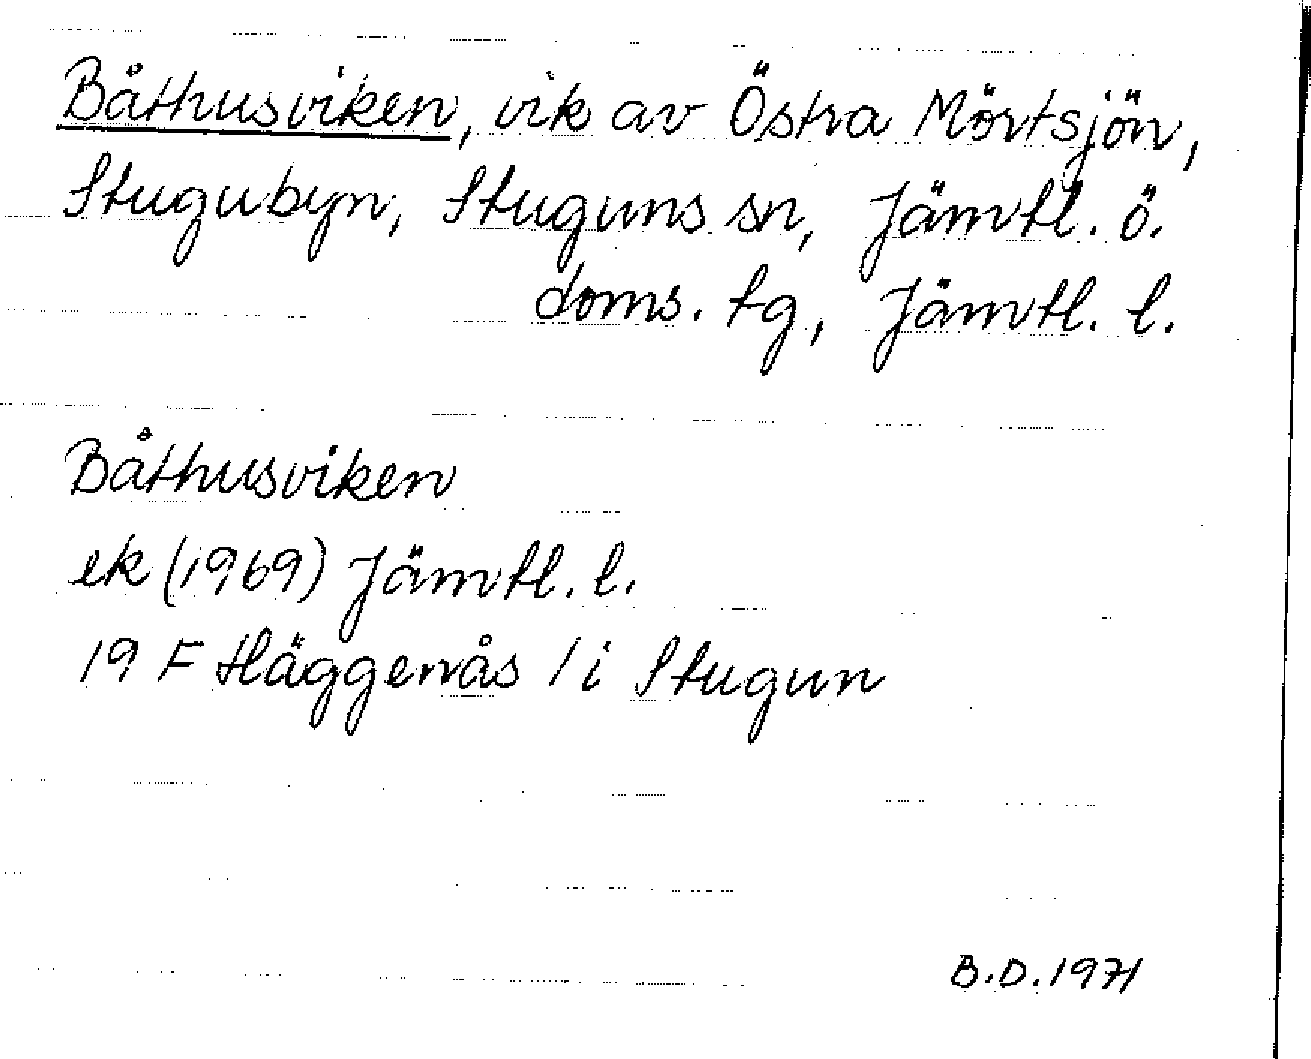 Båthusviken, vik av Östra Mörtsjön,
Stugubyn, Stuguns sn, Jämtl. ö.
doms. tg, Jämtl. l.
Båthusviken
ek (1969) Jämtl. l.
19 F Häggenås / i Stugun
B.D. 1971